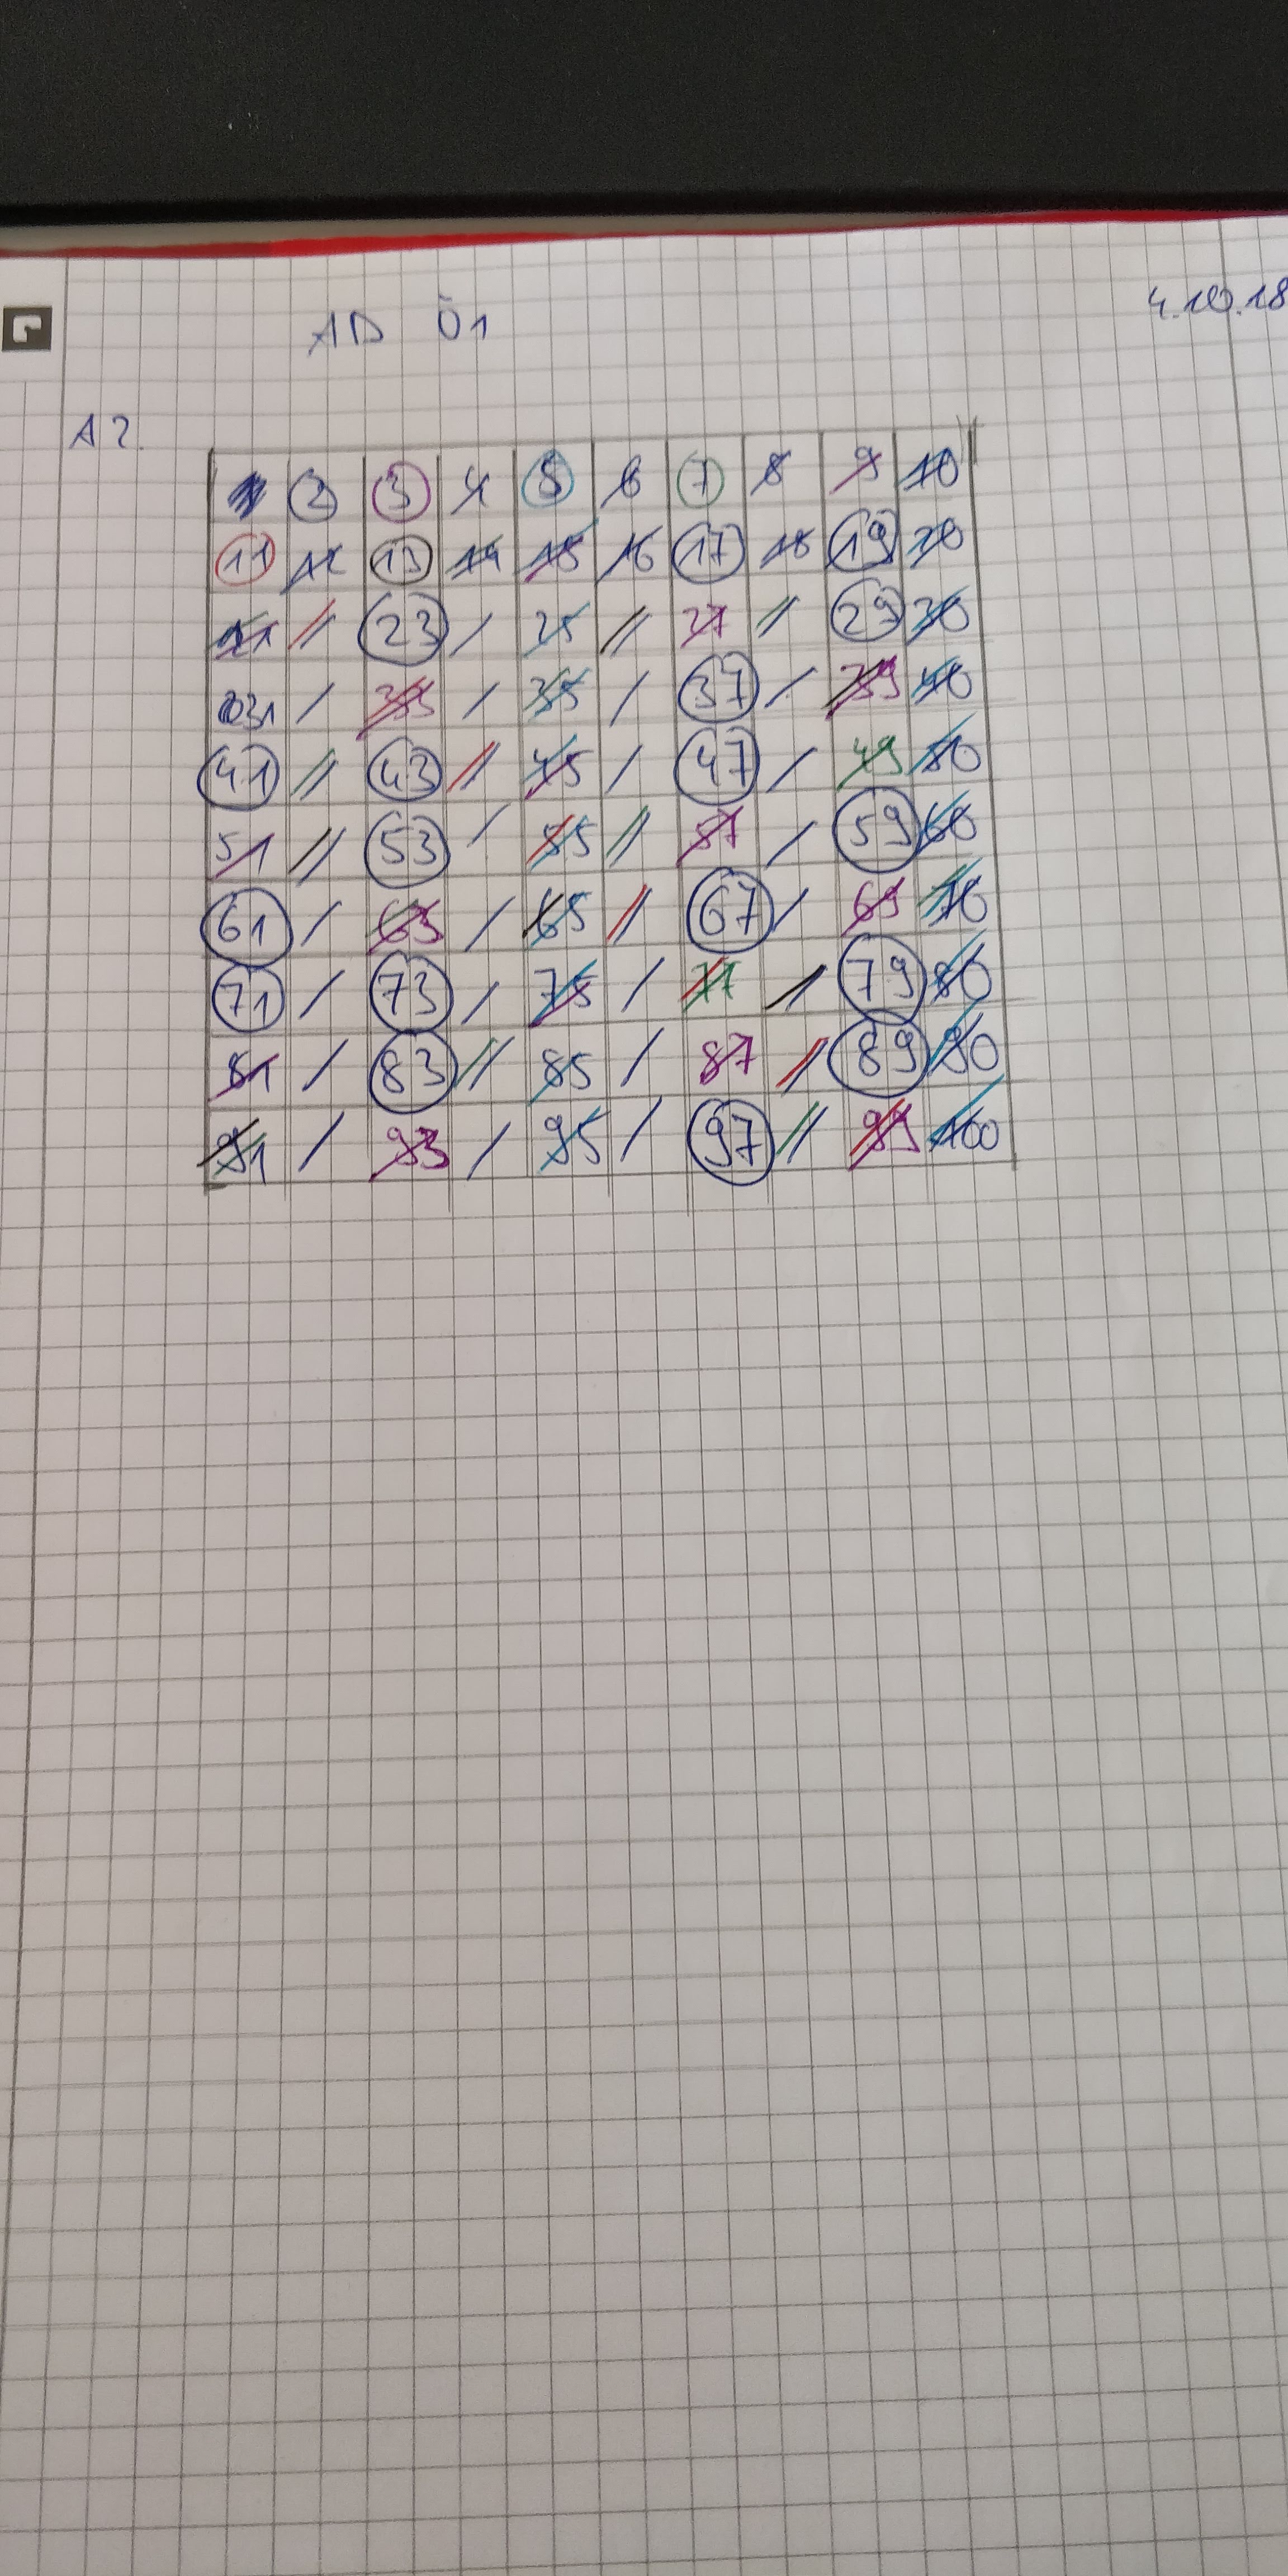 4.10.18
AD Ü1
A2.
1 2 3 4 5 6 7 8 9 10
11 12 13 14 15 16 17 18 19 20
21 // 23 / 25 // 27 // 29 30
31 / 33 / 35 / 37 / 39 40
41 // 43 // 45 / 47 / 49 50
51 // 53 / 55 // 57 / 59 60
61 / 63 / 65 // 67 / 69 70
71 / 73 / 75 / 77 / 79 80
81 / 83 // 85 / 87 // 89 90
91 / 93 / 95 / 97 // 99 100